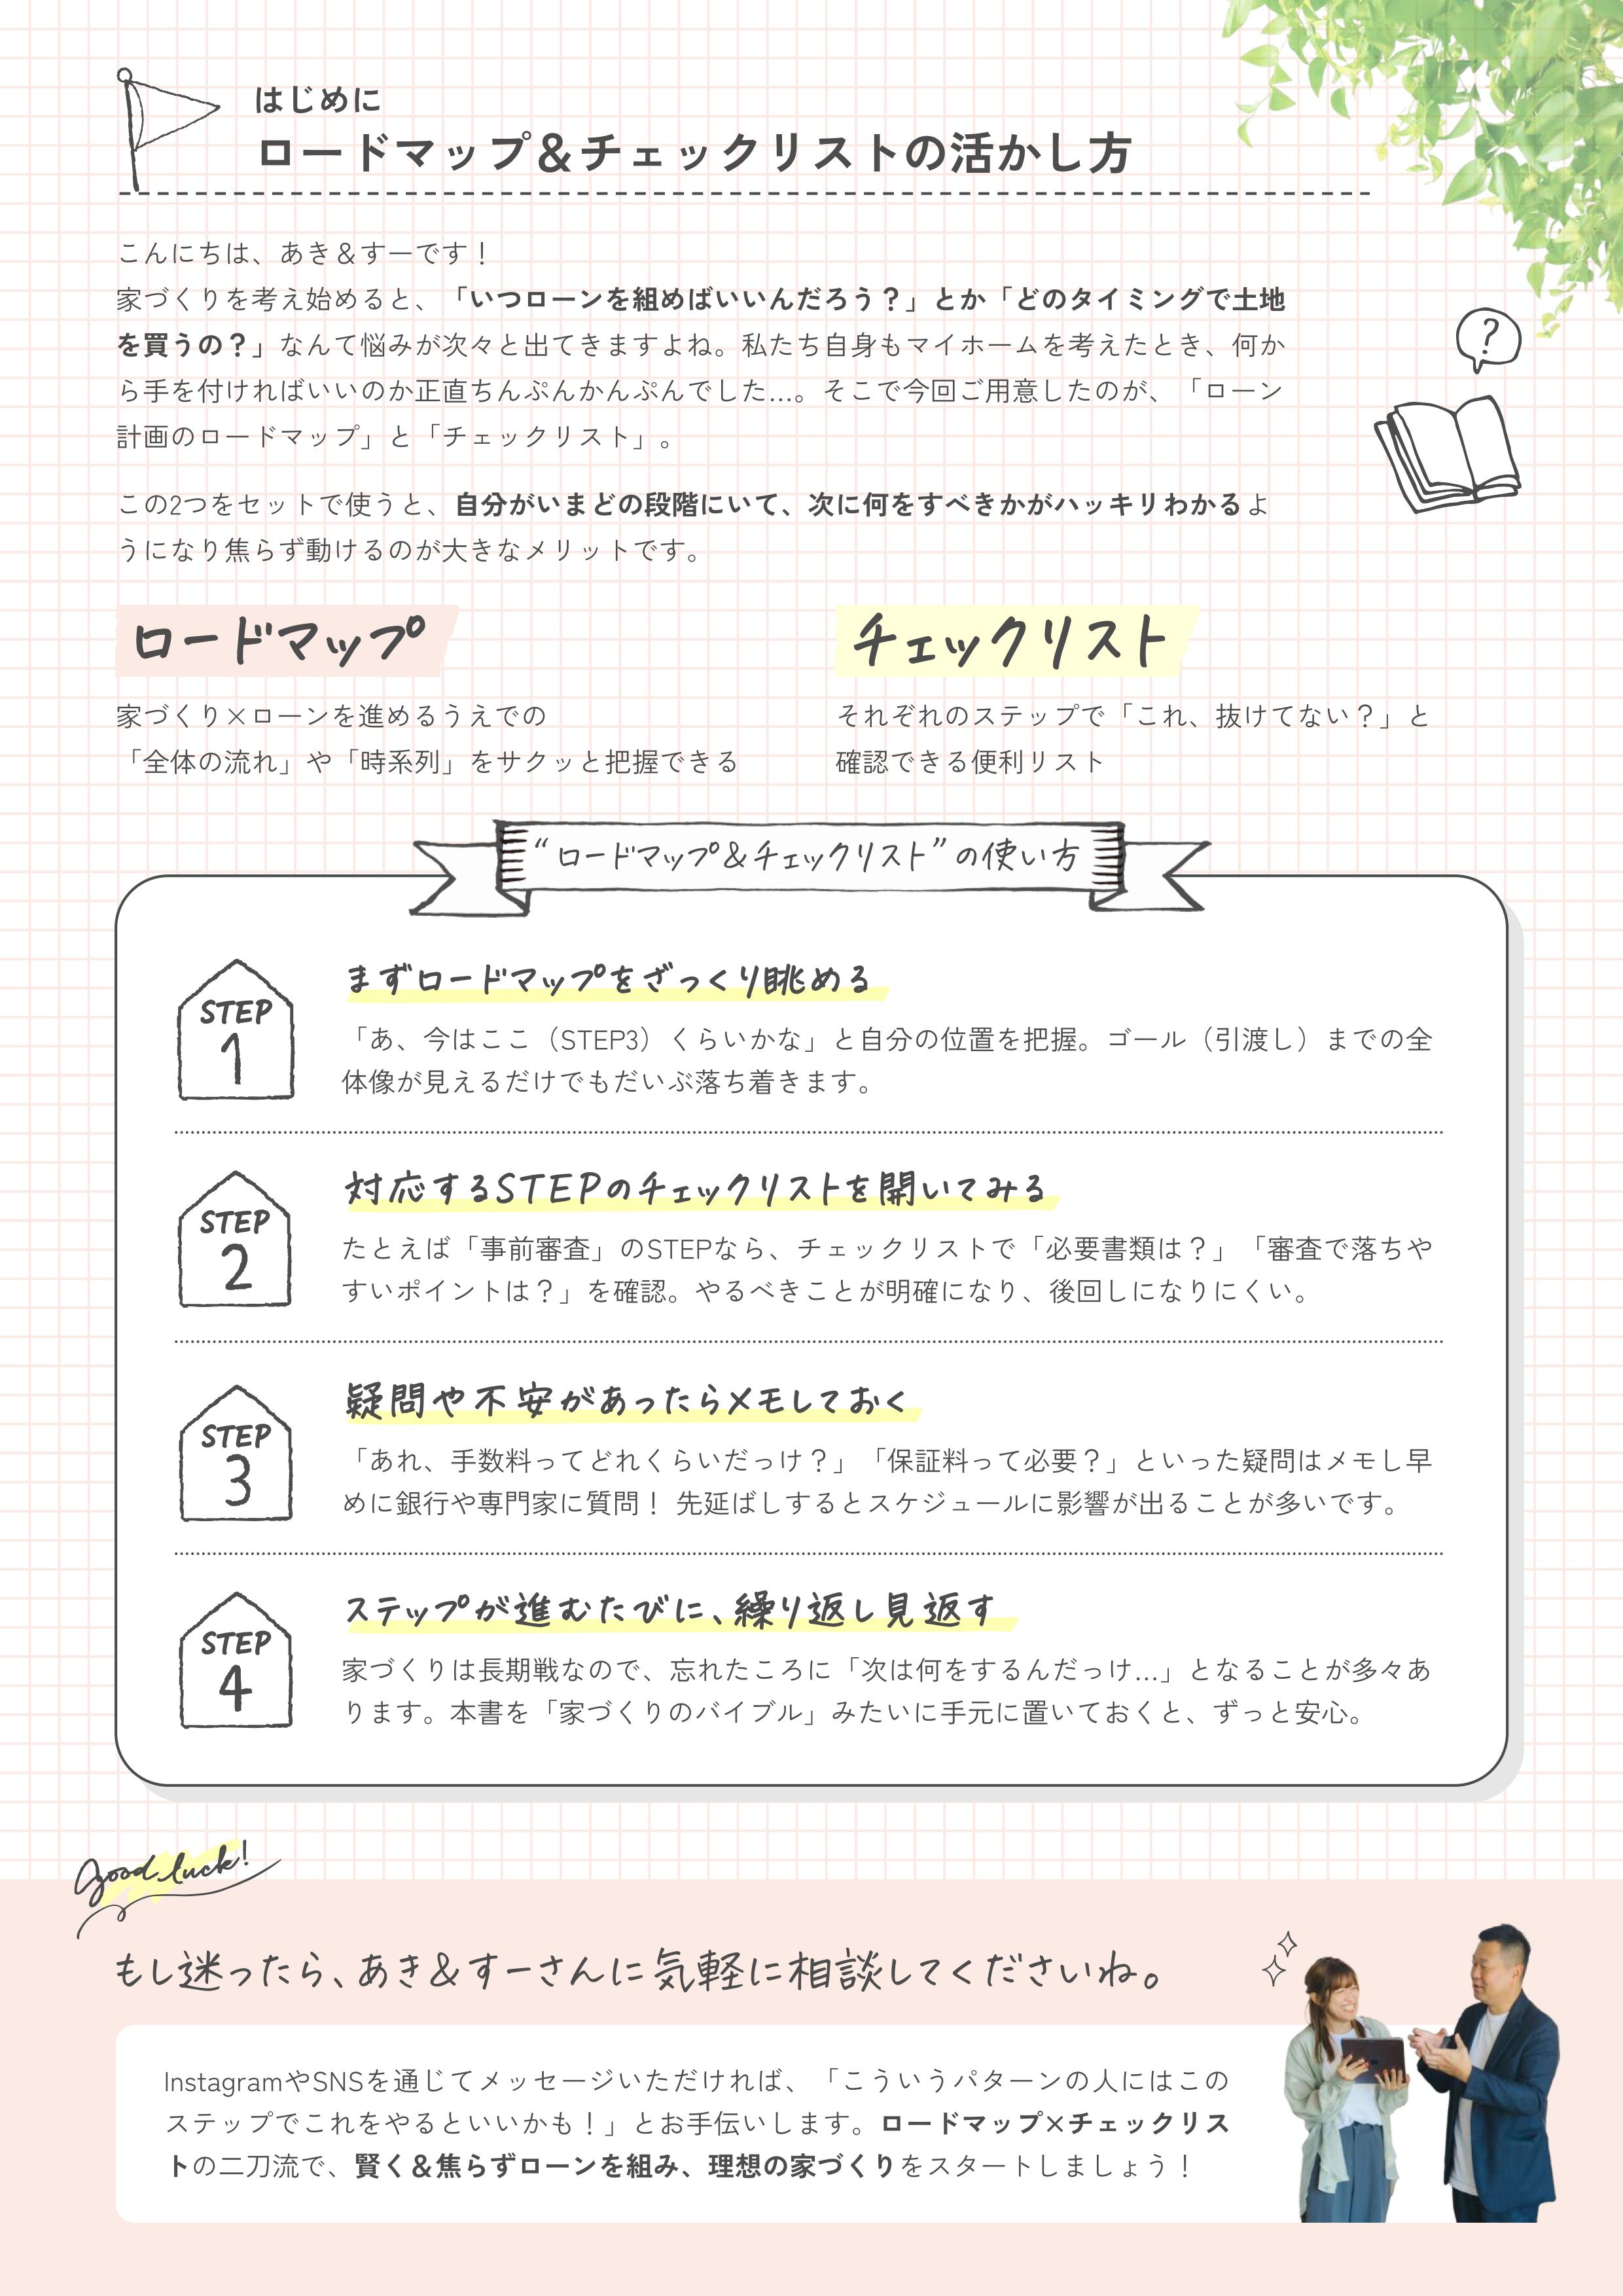 はじめに
ロードマップ&チェックリストの活かし方
こんにちは、あき＆すーです！
家づくりを考え始めると、「いつローンを組めばいいんだろう？」とか「どのタイミングで土地
を買うの？」なんて悩みが次々と出てきますよね。私たち自身もマイホームを考えたとき、何か
ら手を付ければいいのか正直ちんぷんかんぷんでした…。そこで今回ご用意したのが、「ローン
計画のロードマップ」と「チェックリスト」。
この2つをセットで使うと、自分がいまどの段階にいて、次に何をすべきかがハッキリわかるよ
うになり焦らず動けるのが大きなメリットです。
ロードマップ
家づくり×ローンを進めるうえでの
「全体の流れ」や「時系列」をサクッと把握できる
チェックリスト
それぞれのステップで「これ、抜けてない？」と
確認できる便利リスト
“ロードマップ&チェックリスト”の使い方
STEP
1
まずロードマップをざっくり眺める
「あ、今はここ（STEP3）くらいかな」と自分の位置を把握。ゴール（引渡し）までの全
体像が見えるだけでもだいぶ落ち着きます。
STEP
2
対応するSTEPのチェックリストを開いてみる
たとえば「事前審査」のSTEPなら、チェックリストで「必要書類は？」「審査で落ちや
すいポイントは？」を確認。やるべきことが明確になり、後回しになりにくい。
STEP
3
疑問や不安があったらメモしておく
「あれ、手数料ってどれくらいだっけ？」「保証料って必要？」といった疑問はメモし早
めに銀行や専門家に質問！ 先延ばしするとスケジュールに影響が出ることが多いです。
STEP
4
ステップが進むたびに、繰り返し見返す
家づくりは長期戦なので、忘れたころに「次は何をするんだっけ…」となることが多々あ
ります。本書を「家づくりのバイブル」みたいに手元に置いておくと、ずっと安心。
Good luck!
もし迷ったら、あき&すーさんに気軽に相談してくださいね。
InstagramやSNSを通じてメッセージいただければ、「こういうパターンの人にはこの
ステップでこれをやるといいかも！」とお手伝いします。ロードマップ×チェックリス
トの二刀流で、賢く＆焦らずローンを組み、理想の家づくりをスタートしましょう！
?